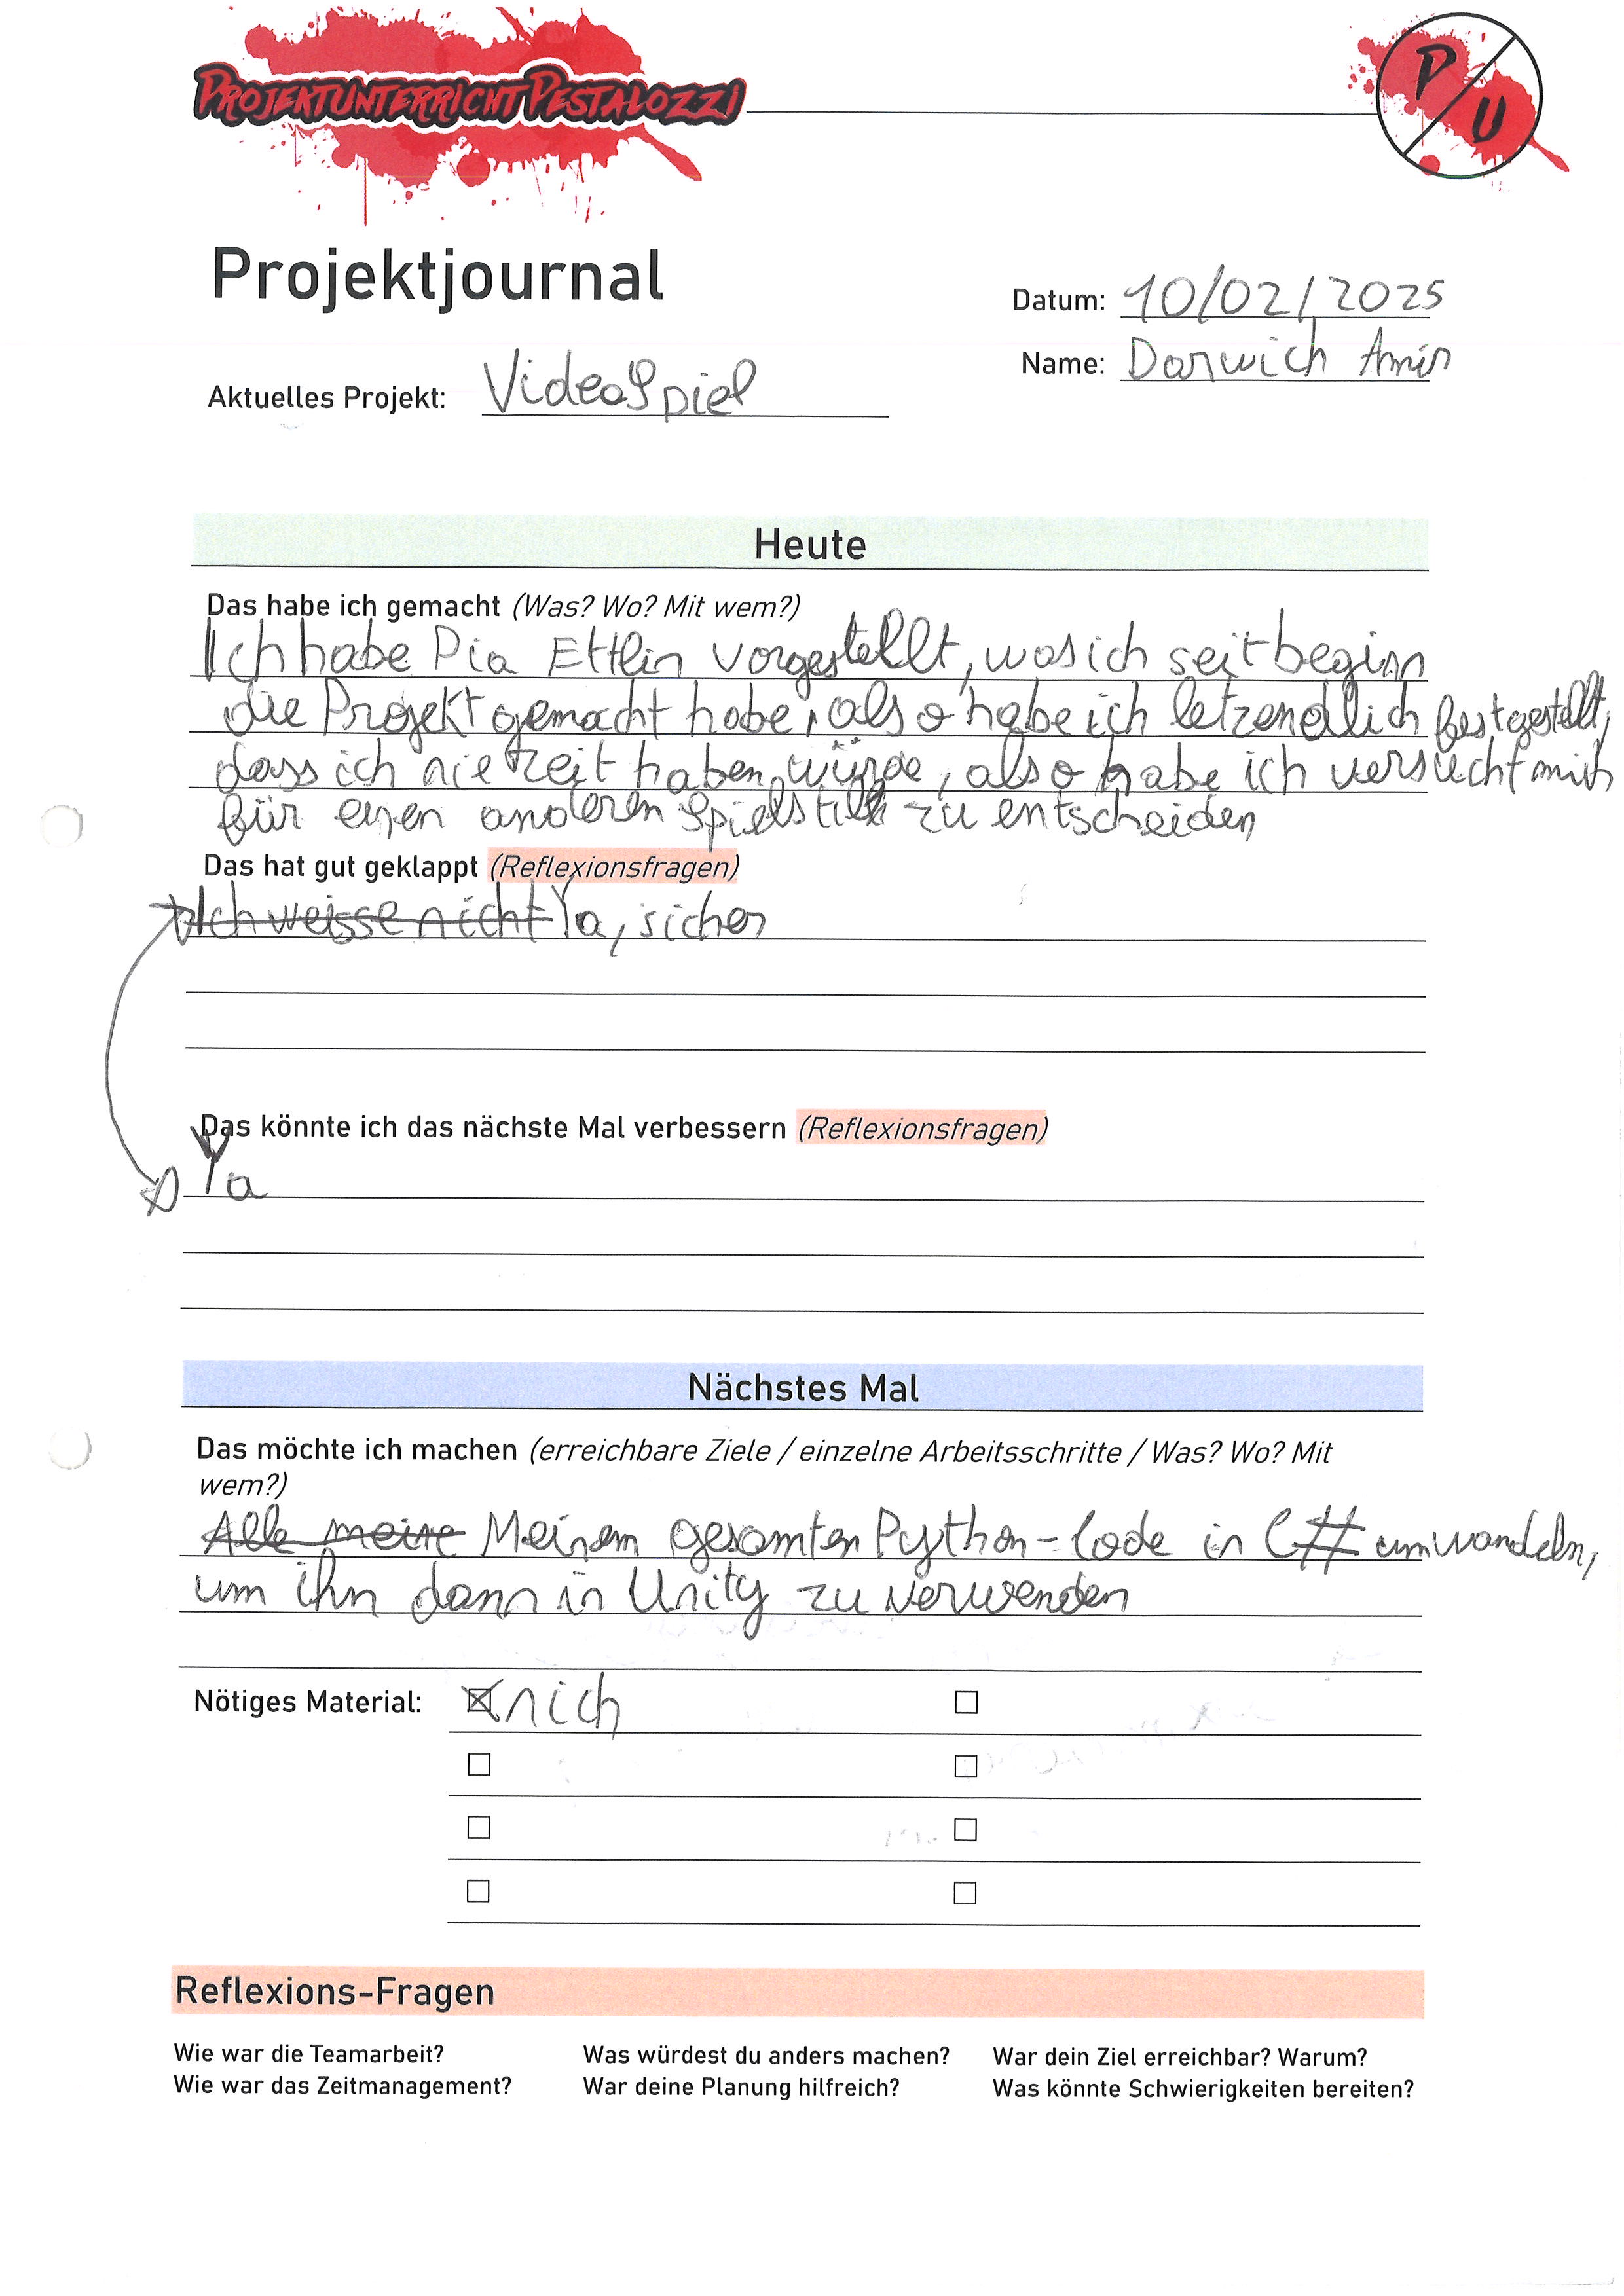 PROJEKTUNTERRICHT PESTALOZZI
P U
Projektjournal
Datum: 10/02/2025
Name: Darwich Amir
Aktuelles Projekt: VideoSpiel
Heute
Das habe ich gemacht (Was? Wo? Mit wem?)
Ich habe Pia Ettlin vorgestellt, was ich seit beginn
die Projekt gemacht habe, also habe ich letzendlich festgestellt,
dass ich nie zeit haben würde, also habe ich versucht mich
für einen anderen Spielstil zu entscheiden
Das hat gut geklappt (Reflexionsfragen)
Ich weisse nicht Ya, sicher
Das könnte ich das nächste Mal verbessern (Reflexionsfragen)
Ya
Nächstes Mal
Das möchte ich machen (erreichbare Ziele / einzelne Arbeitsschritte / Was? Wo? Mit
wem?)
Alle meine Meinem gesamten Python-Code in C# umwandeln,
um ihn dann in Unity zu verwenden
Nötiges Material: nich
Reflexions-Fragen
Wie war die Teamarbeit? Was würdest du anders machen? War dein Ziel erreichbar? Warum?
Wie war das Zeitmanagement? War deine Planung hilfreich? Was könnte Schwierigkeiten bereiten?